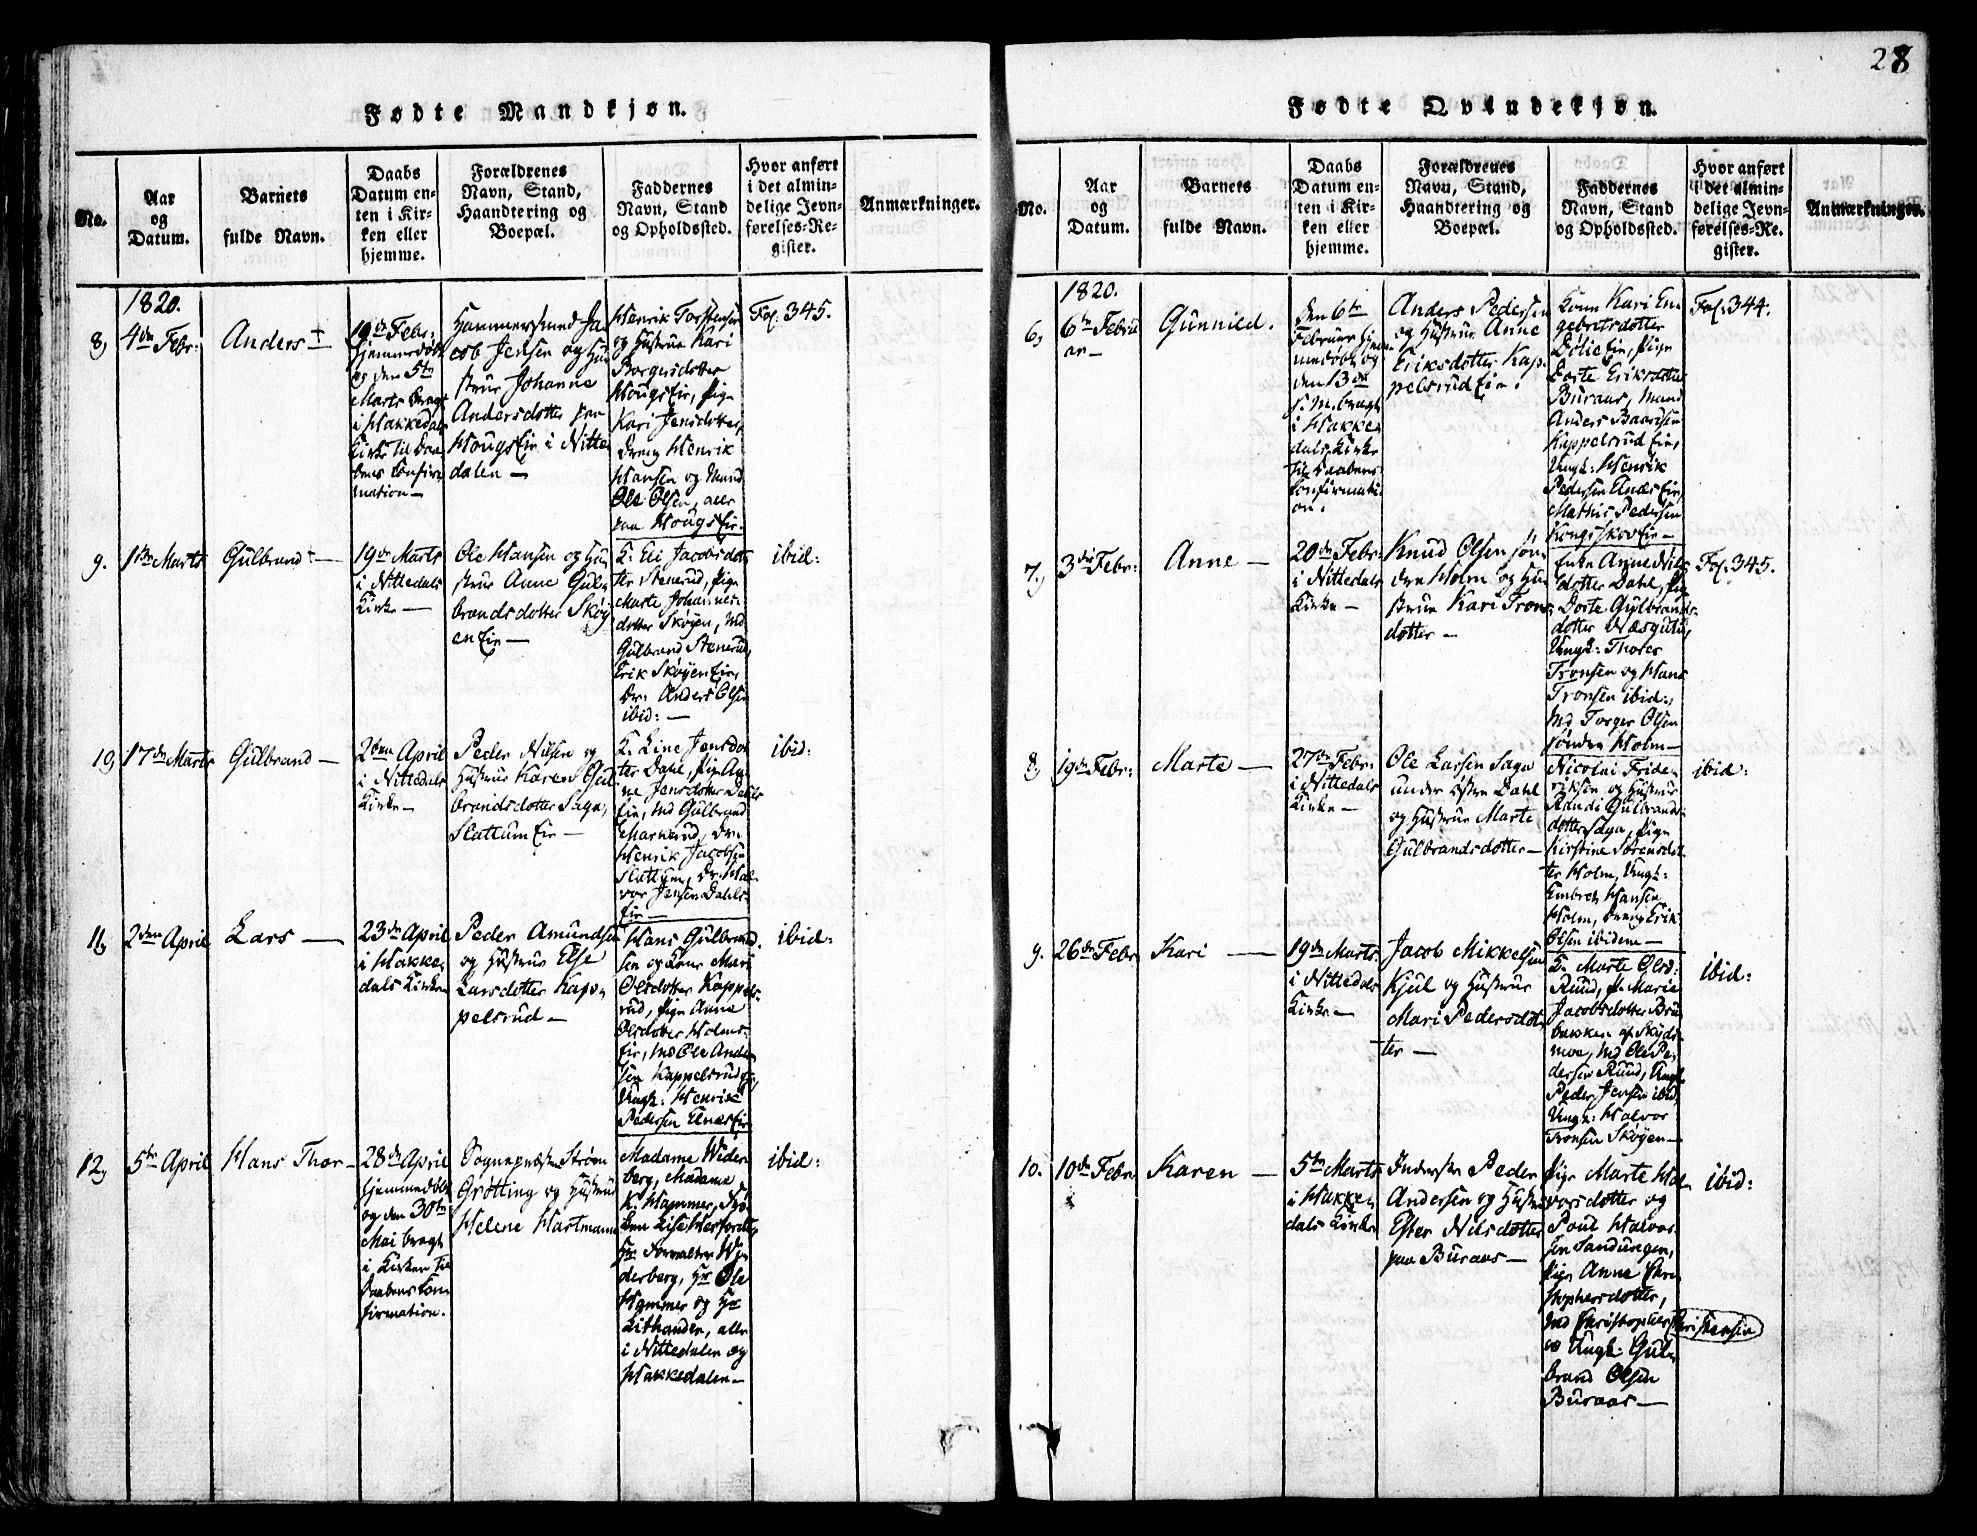 28
Fødte Mandkjøn.
No.
Aar
og
Datum.
Barnets
fulde Navn.
Daabs
Datum en-
ten i Kir-
ken eller
hjemme.
Forældrenes
Navn, Stand,
Haandtering og
Boepæl.
Faddernes
Navn, Stand
og Opholdssted.
Hvor anført
i det almin-
delige Jevn-
førelses-Re-
gister.
Anmærkninger.
1820.
8,
4de Febr:
Anders †
19de Febr:
hjemmedøbt
og den 5te
Marts bragt
i Hakkedals
Kirke til Daa-
bens Confir-
mation —
Hammersmed Ja-
cob Jensen og Hu-
strue Johanne
Andersdotter paa
Hougs Eie i Nitte-
dalen —
Henrik Torstensen
og Hustrue Kari
Borgersdotter
Hougs Eie, Pige
Kari Jensdotter,
Dreng Henrik
Hansen og Mand
Ole Olsen, alle
paa Hougs Eie.
Fol. 345.
9.
1ste Marts
Gulbrand † —
19de Marts
i Nittedals
Kirke —
Ole Hansen og Hu-
strue Anne Gul-
brandsdotter Skøy-
en Eie —
K. Eli Jacobsdot-
ter Stenerud, Pige
Marte Johannes-
dotter Skøyen, Md
Gulbrand Stenerud,
Erik Skøyen Eie,
Dr: Anders Olsen
ibid: —
ibid:
10,
17de Marts
Gulbrand —
2den April
i Nittedals
Kirke —
Peder Nilsen og
Hustrue Karen Gul-
brandsdotter Saga,
Slattum Eie —
K. Line Jensdot-
ter Dahl, Pige An-
ne Jensdotter Dahls
Eie, Md Gulbrand
Markerud, Dr:
Henrik Jacobsen
Slattum, Dr: Hal-
vor Jensen Dahls-
Eie —
ibid:
11,
2den April
Lars —
23de April
i Hakke-
dals Kirke
Peder Amundsen
og Hustrue Else
Larsdotter Kap-
pelsrud —
Hans Gulbrand-
sen og Kone Mari
Olsdotter Kappels-
rud, Pige Anne
Olsdotter Holms-
Eie, Md Ole Ander-
sen Kappelsrud
Ungk: Henrik
Pedersen Elnæs Eie
ibid:
12,
5te April
Hans Thor —
28de April
hjemmedøbt
og den 30te
Mai bragt
i Kirken til
Daabens Con-
firmation.
Sognepræsten Strøm
Grøtting og Hustrue
Helene Hartmann
Madame Wider-
berg, Madame
K. Hammer,
Lise Herfordt,
Hr Forvalter Wi-
derberg, Hr Ole
Hammer og Hr
Lithander, alle
i Nittedalen og
Hakkedalen —
ibid:
Fødte Qvindekjøn.
No.
Aar
og
Datum.
Barnets
fulde Navn.
Daabs
Datum en-
ten i Kir-
ken eller
hjemme.
Forældrenes
Navn, Stand,
Haandtering og
Boepæl.
Faddernes
Navn, Stand
og Opholdssted.
Hvor anført
i det almin-
delige Jevn-
førelses-Re-
gister.
Anmærkninger.
1820.
6,
6te Febru-
ar —
Gunnild.
den 6te
Februar hjem-
medøbt og
den 13de
s. M. bragt
i Hakke-
dals Kirke
til Daabens
Confirmati-
on.
Anders Pedersen
og Hustrue Anne
Eriksdotter Kap-
pelsrud Eie.
Kone Kari En-
gebretsdotter
Dølie Eie, Pige
Dorte Eriksdotter
Buraas, Mand
Anders Baardsen
Kappelsrud Eie,
Ungk: Henrik
Pedersen Elnæs Eie,
Mathis Pedersen
Kongsskov Eie —
Fol. 344.
7,
3die Febr:
Anne —
20de Febr:
i Nittedals
Kirke —
Knud Olsen søn-
dre Holm og Hu-
strue Kari Trons-
dotter —
Enke Anne Nils-
dotter Dahl, Pige
Dorte Gulbrands-
dotter
Ungk: Thores
Tronsen og Hans
Tronsen ibid:,
Md Torger Olsen
søndre Holm —
Fol. 345.
8,
19de Febr:
Marte —
27de Febr:
i Nittedals
Kirke —
Ole Larsen Saga
under Østre Dahl
og Hustrue Marte
Gulbrandsdotter —
Nicolai Fride-
riksen og Hustrue
Randi Gulbrands-
dotter Saga, Pige
Kirstine Sørensdot-
ter Holm, Ungk:
Embret Hansen
Holm, Dreng Erik
Olsen ibidem —
ibid:
9.
26de Febr.
Kari —
19de Marts
i Nittedals
Kirke —
Jacob Mikkelsen
Kjul og Hustrue
Mari Pedersdot-
ter —
K. Marte Olsd:
Ruud, P. Marie
Jacobsdotter Bru-
bakken af Skyds-
moe, Md Ole Pe-
dersen Ruud, Ungk:
Peder Jensen ibid,
Ungk: Halvor
Tronsen Skøyen —
ibid:
10.
10de Febr.
Karen —
5te Marts
i Hakke-
dals Kirke
Inderster Peder
Andersen og Hustrue
Ester Nilsdotter
paa Buraas —
Pige Marte Hal-
vorsdotter og
Poul Halvor-
sen Sandungen,
Pige Anne Chri-
stophersdotter,
Md Christopher Christensen
og Ungk: Gul-
brand Olsen
Buraas —
ibid: